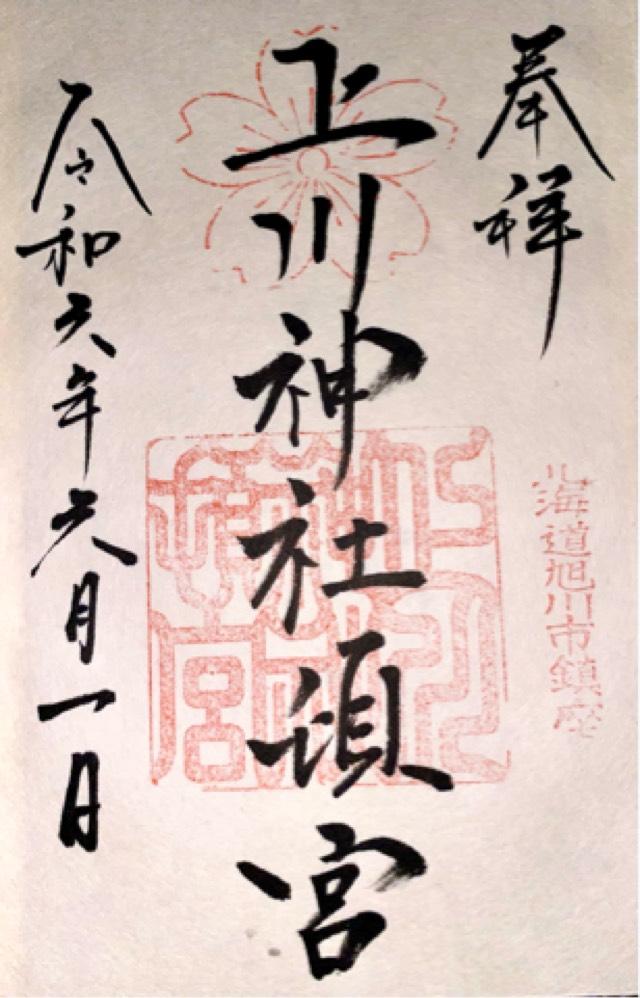 奉拝
北海道旭川市鎮座
上川神社頓宮
令和六年六月一日